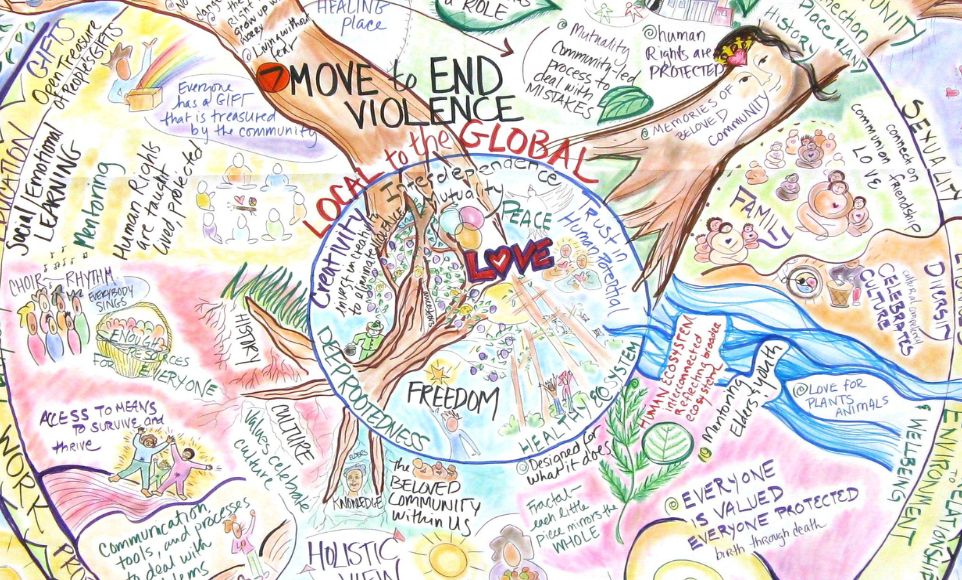 HEALING
place
a ROLE
@Living without
Fear
GIFTS
Open Treasure
of PEOPLE'S GIFTS
Everyone
has a GIFT
that is treasured
by the community
7 MOVE to END
VIOLENCE
LOCAL to the GLOBAL
@Mutuality
Community-led
process to
deal with
MISTAKES
@human
Rights are
PROTECTED
HISTORY
@MEMORIES OF
BELOVED
COMMUNITY
SEXUALITY
connect on
friendship
communion
LOVE
FAMILY
Social/Emotional
LEARNING
Mentoring
Human Rights
are taught
Lived, protected
Interdependence
Mutuality
PEACE
LOVE
Trust in
Human Potential
Creativity
invest in creativity
DEEPROOTEDNESS
FREEDOM
HEALTHY ECOSYSTEM
CHOIR
RHYTHM
EVERYBODY
SINGS
ENOUGH
RESOURCES
FOR EVERYONE
HISTORY
CULTURE
Values celebrate
culture
ACESS TO MEANS
TO SURVIVE and
thrive
ELDERS
KNOWLEDGE
the
BELOVED
COMMUNITY
within US
@Designed for
what it does
Fractal-
each little
Piece mirrors the
WHOLE
DIVERSITY
CELEBRATES
CULTURES
HUMAN ECOSYSTEM
interconnected
Reflecting broader
ecosystem
@Mentoring
Elders & youth
@LOVE FOR
PLANTS
ANIMALS
ENVIRONMENT
WELLBEING
@EVERYONE
IS VALUED
EVERYONE PROTECTED
birth through death
WORK
Communication
tools, and processes
to deal with
HOLISTIC
VIEW